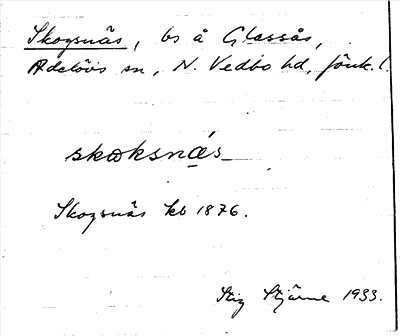 Skogsnäs, bs å Glassås,
Adelövs sn, N. Vedbo hd, Jönk. l.
skoksnäs
Skogsnäs kb 1876.
Stig Stjärne 1933.